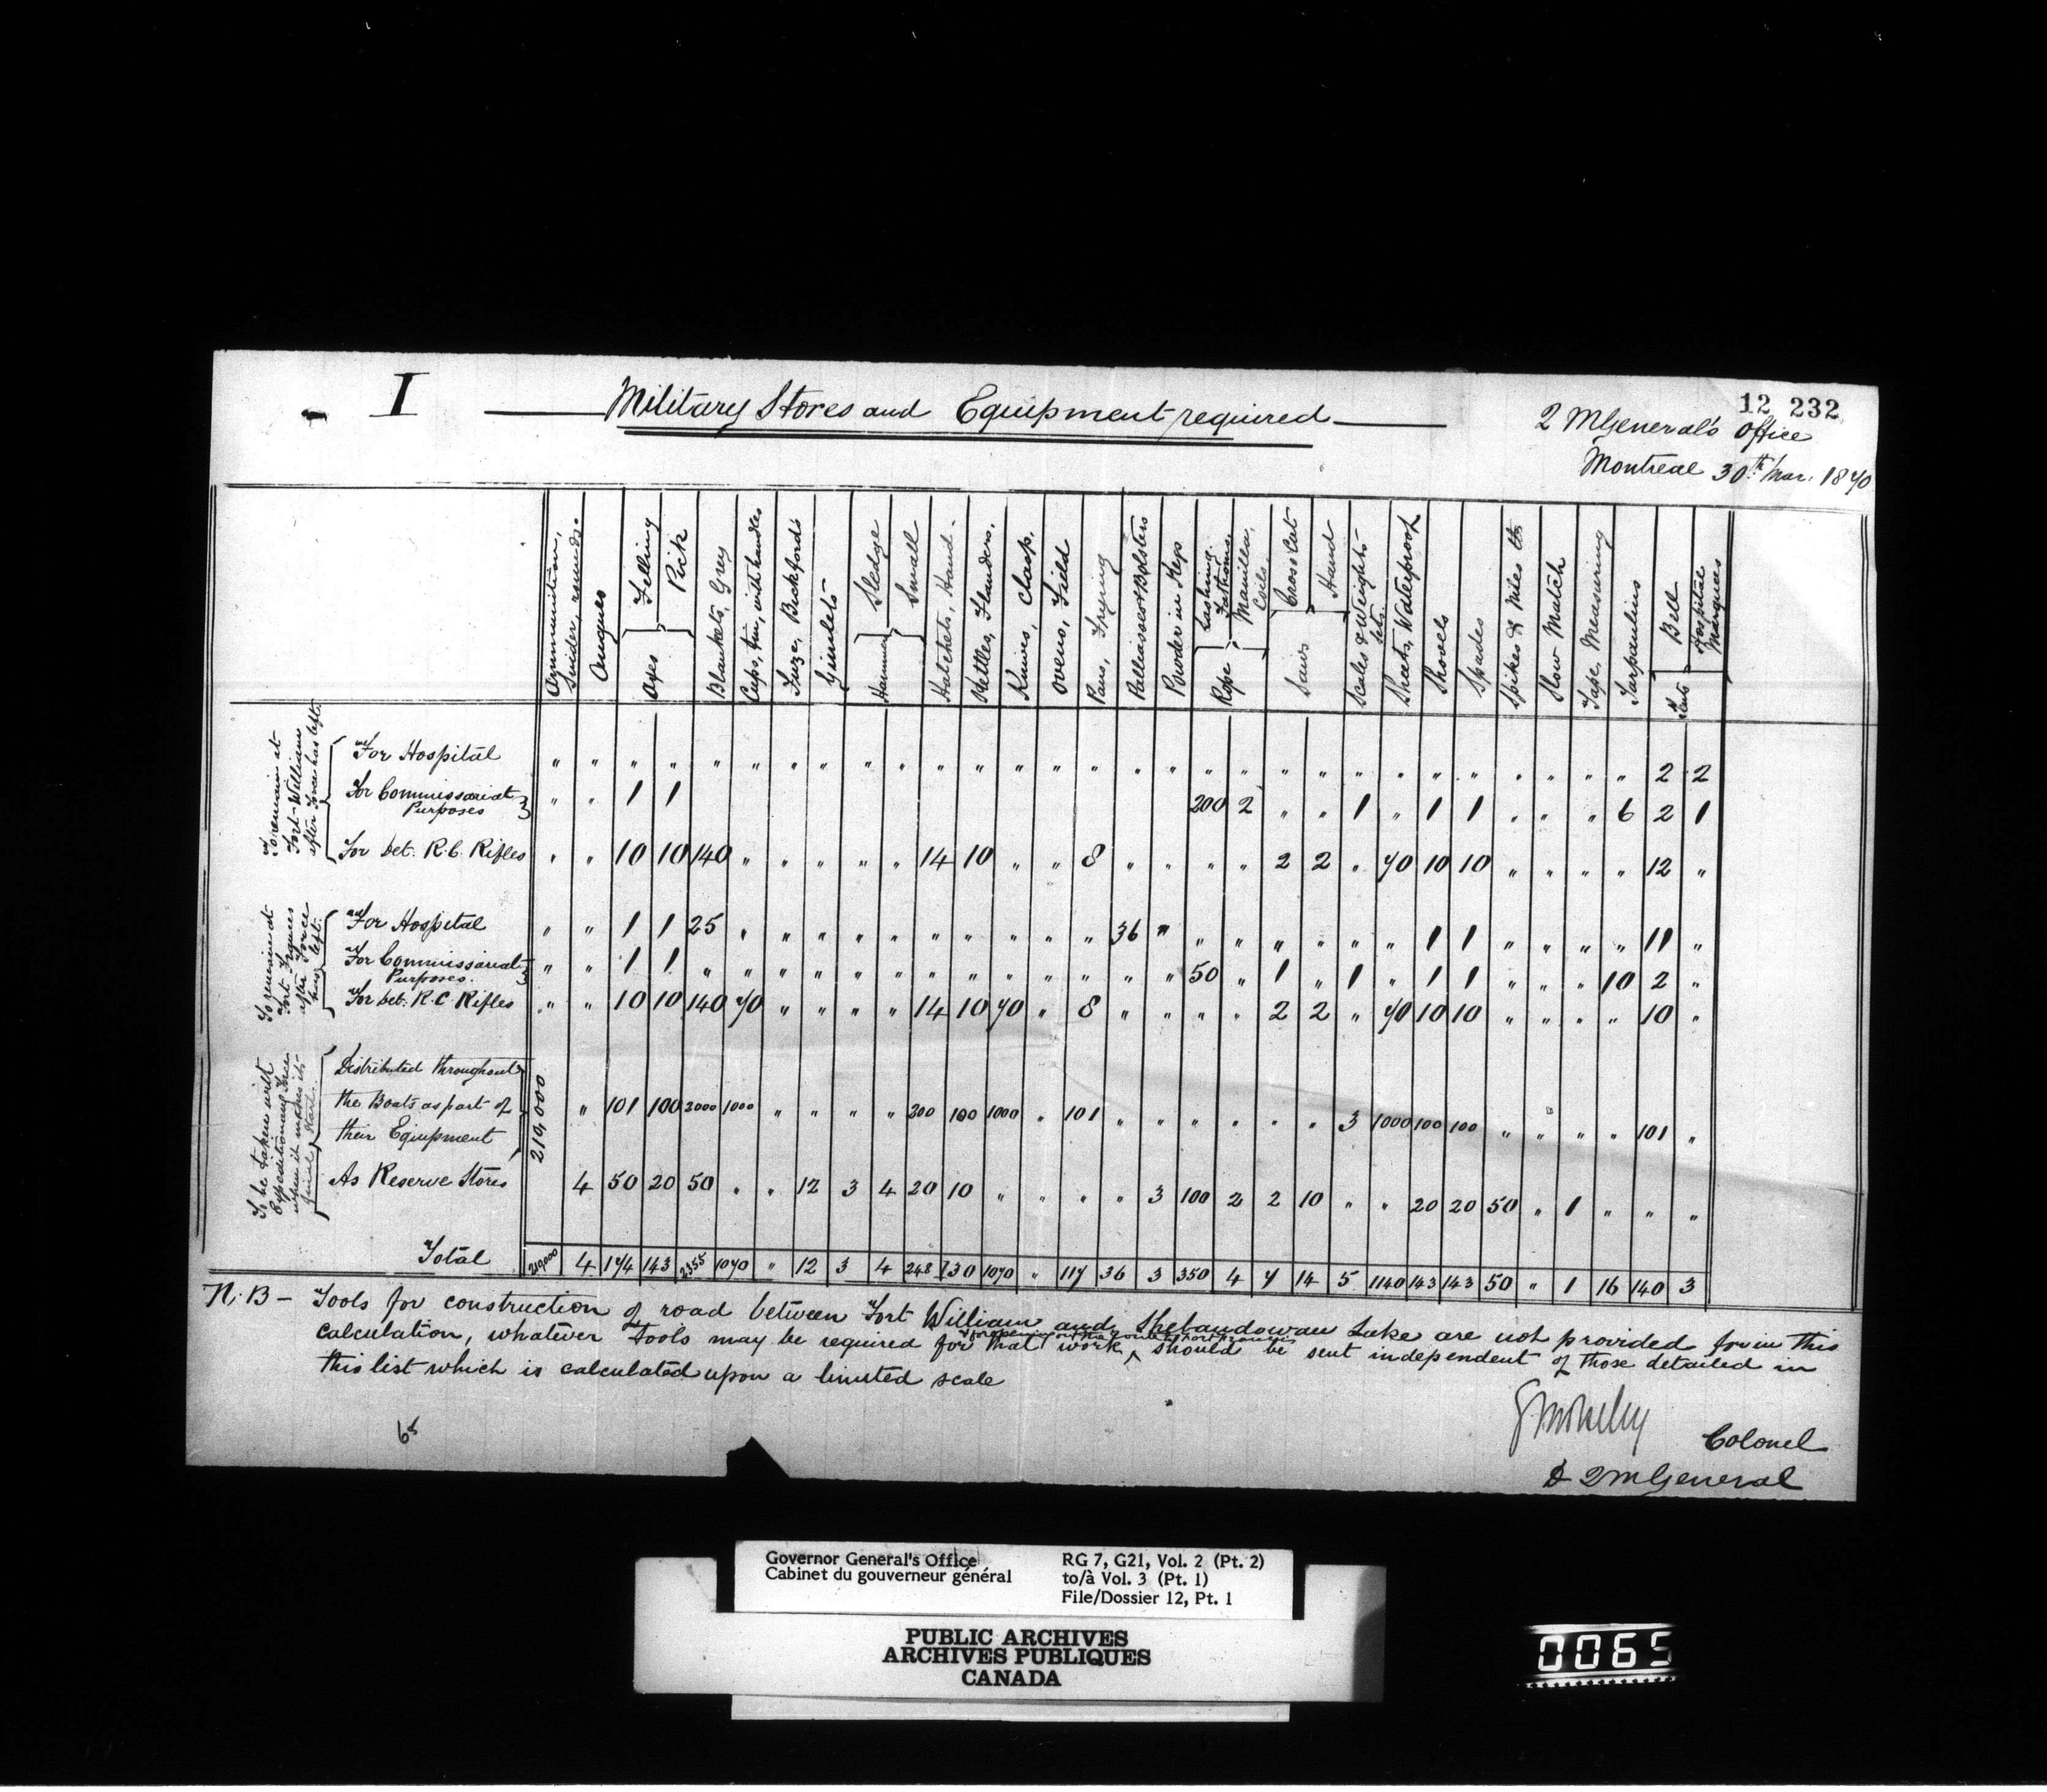 I
Military Stores and Equipment required
12 232
2 MGeneral's Office
Montreal 30th Mar. 1870
Ammunition, Snider, rounds.
Augurs
Axes Felling Pick
Blankets, Grey
Cups, tin, with handles
Fuze, Bickford's
Gimlets
Hammers Sledge Small
Hatchets, Hand.
Kettles, Flanders.
Knives, Clasp.
Ovens, Field
Pans, Frying
Palliasses & Bolsters
Powder in Kegs
Rope Lashing. Fathoms. Manilla, Coils
Saws Cross Cut Hand
Scales & Weights sets.
Sheets, Waterproof
Shovels
Spades
Spikes & Nails lbs
Slow Match
Tape, Measuring
Tarpaulins
Tents Bell Hospital Marquees
To remain at Fort-William after Force has left.
For Hospital " " " " " " " " " " " " " " " " " " " " " " " " " " " " 2 2
For Commissariat Purposes " " 1 1 200 2 " " 1 " 1 1 " " " 6 2 1
For Det. R.C. Rifles " " 10 10 140 " " " " " 14 10 " " 8 " " " " 2 2 " 70 10 10 " " " " 12 "
To remain at Fort Frances after Force has left.
For Hospital " " 1 1 25 " " " " " " " " " " 36 " " " " " " " 1 1 " " " " 11 "
For Commissariat Purposes. " " 1 1 " " " " " " " " " " " " " 50 " 1 " 1 " 1 1 " " " 10 2 "
For Det. R.C Rifles " " 10 10 140 70 " " " " 14 10 70 " 8 " " " " 2 2 " 70 10 10 " " " " 10 "
To be taken with Expeditionary Force when it makes its final start.
Distributed throughout
the Boats as part of
their Equipment 219,000 " 101 100 2000 1000 " " " " 200 100 1000 " 101 " " " " " " 3 1000 100 100 " " " " 101 "
As Reserve Stores 4 50 20 50 " " 12 3 4 20 10 " " " " 3 100 2 2 10 " " 20 20 50 " 1 " " "
Total 219000 4 174 143 2355 1070 " 12 3 4 248 130 1070 " 117 36 3 350 4 7 14 5 1140 143 143 50 " 1 16 140 3
N.B - Tools for construction of road between Fort William and Shebandowan Lake are not provided for in this
calculation, whatever Tools may be required for that work should be sent independent of those detailed in
this list which is calculated upon a limited scale
65
G J Wolseley
Colonel
D 2 M General
Governor General's Office
Cabinet du gouverneur général
RG 7, G21, Vol. 2 (Pt. 2)
to/à Vol. 3 (Pt. 1)
File/Dossier 12, Pt. 1
PUBLIC ARCHIVES
ARCHIVES PUBLIQUES
CANADA
0065